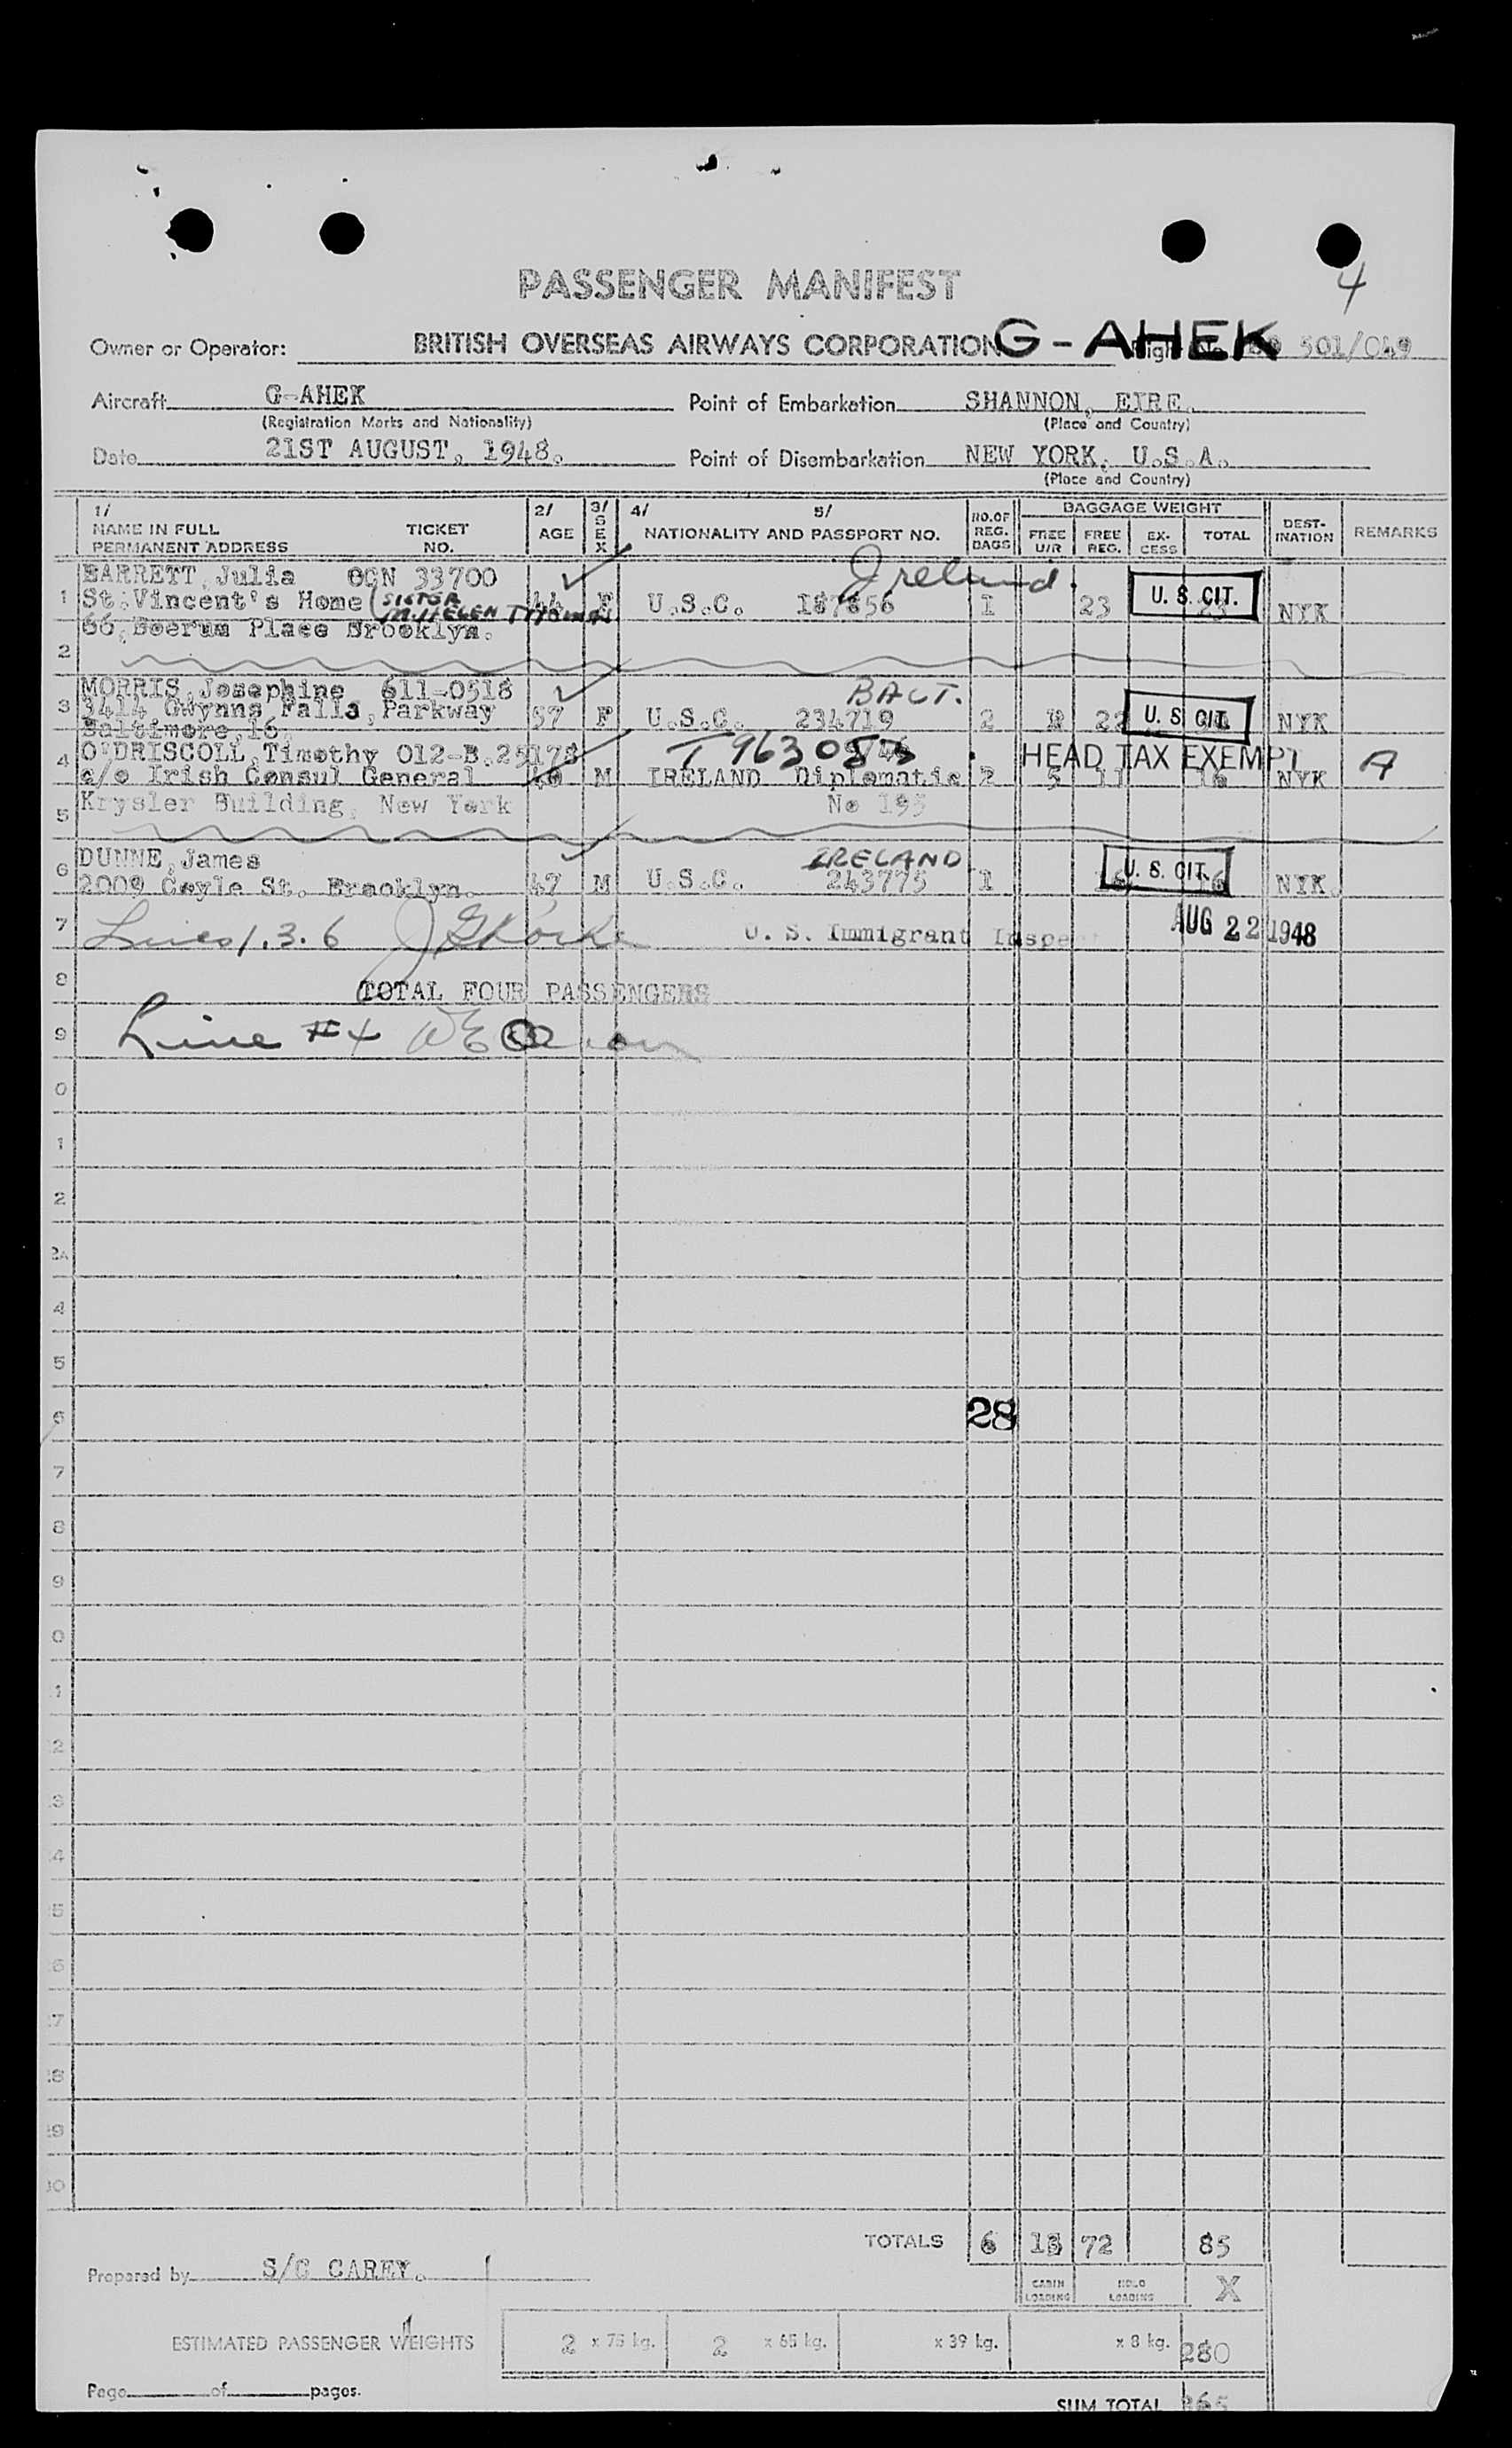 4
PASSENGER MANIFEST
Owner or Operator: BRITISH OVERSEAS AIRWAYS CORPORATION G-AHEK 501/049
Aircraft G-AHEK Point of Embarkation SHANNON, EIRE.
(Registration Marks and Nationality) (Place and Country)
Date 21ST AUGUST, 1948. Point of Disembarkation NEW YORK, U.S.A.
(Place and Country)
1/ 2/ 3/ 4/ 5/ NO.OF BAGGAGE WEIGHT
NAME IN FULL TICKET AGE SEX NATIONALITY AND PASSPORT NO. REG. FREE FREE EX- TOTAL DEST- REMARKS
PERMANENT ADDRESS NO. BAGS U/R REG. CESS INATION
BARRETT, Julia OCN 33700 Ireland.
1 St. Vincent's Home (SISTER 44 F U.S.C. 187856 1 23 U. S. CIT. 23 NYK
M. HELEN
66, Boerum Place Brooklyn.
2
MORRIS, Josephine 611-0518 BALT.
3 3414 Gwynns Falls, Parkway 57 F U.S.C. 234719 2 22 U. S. CIT. NYK
Baltimore, 16
4 O'DRISCOLL, Timothy 012-B.25178 T963083 HEAD TAX EXEMPT A
c/o Irish Consul General 40 M IRELAND Diplomatic 2 5 11 16 NYK
5 Krysler Building, New York No 195
DUNNE, James IRELAND
6 2009 Coyle St. Brooklyn. 47 M U.S.C. 243775 1 16 U. S. CIT. 16 NYK.
7 Lines 1.3.6 U. S. Immigrant Inspe AUG 22 1948
8 TOTAL FOUR PASSENGERS
9 Line #4
0
1
2
2A
4
5
6 28
7
8
9
0
1
2
3
4
5
6
7
8
9
30
TOTALS 6 13 72 85
Prepared by S/C CAREY. CABIN LOADING HOLD LOADING X
ESTIMATED PASSENGER WEIGHTS 2 x 75 kg. 2 x 65 kg. x 39 kg. x 8 kg. 280
Page of pages.
SUM TOTAL 365